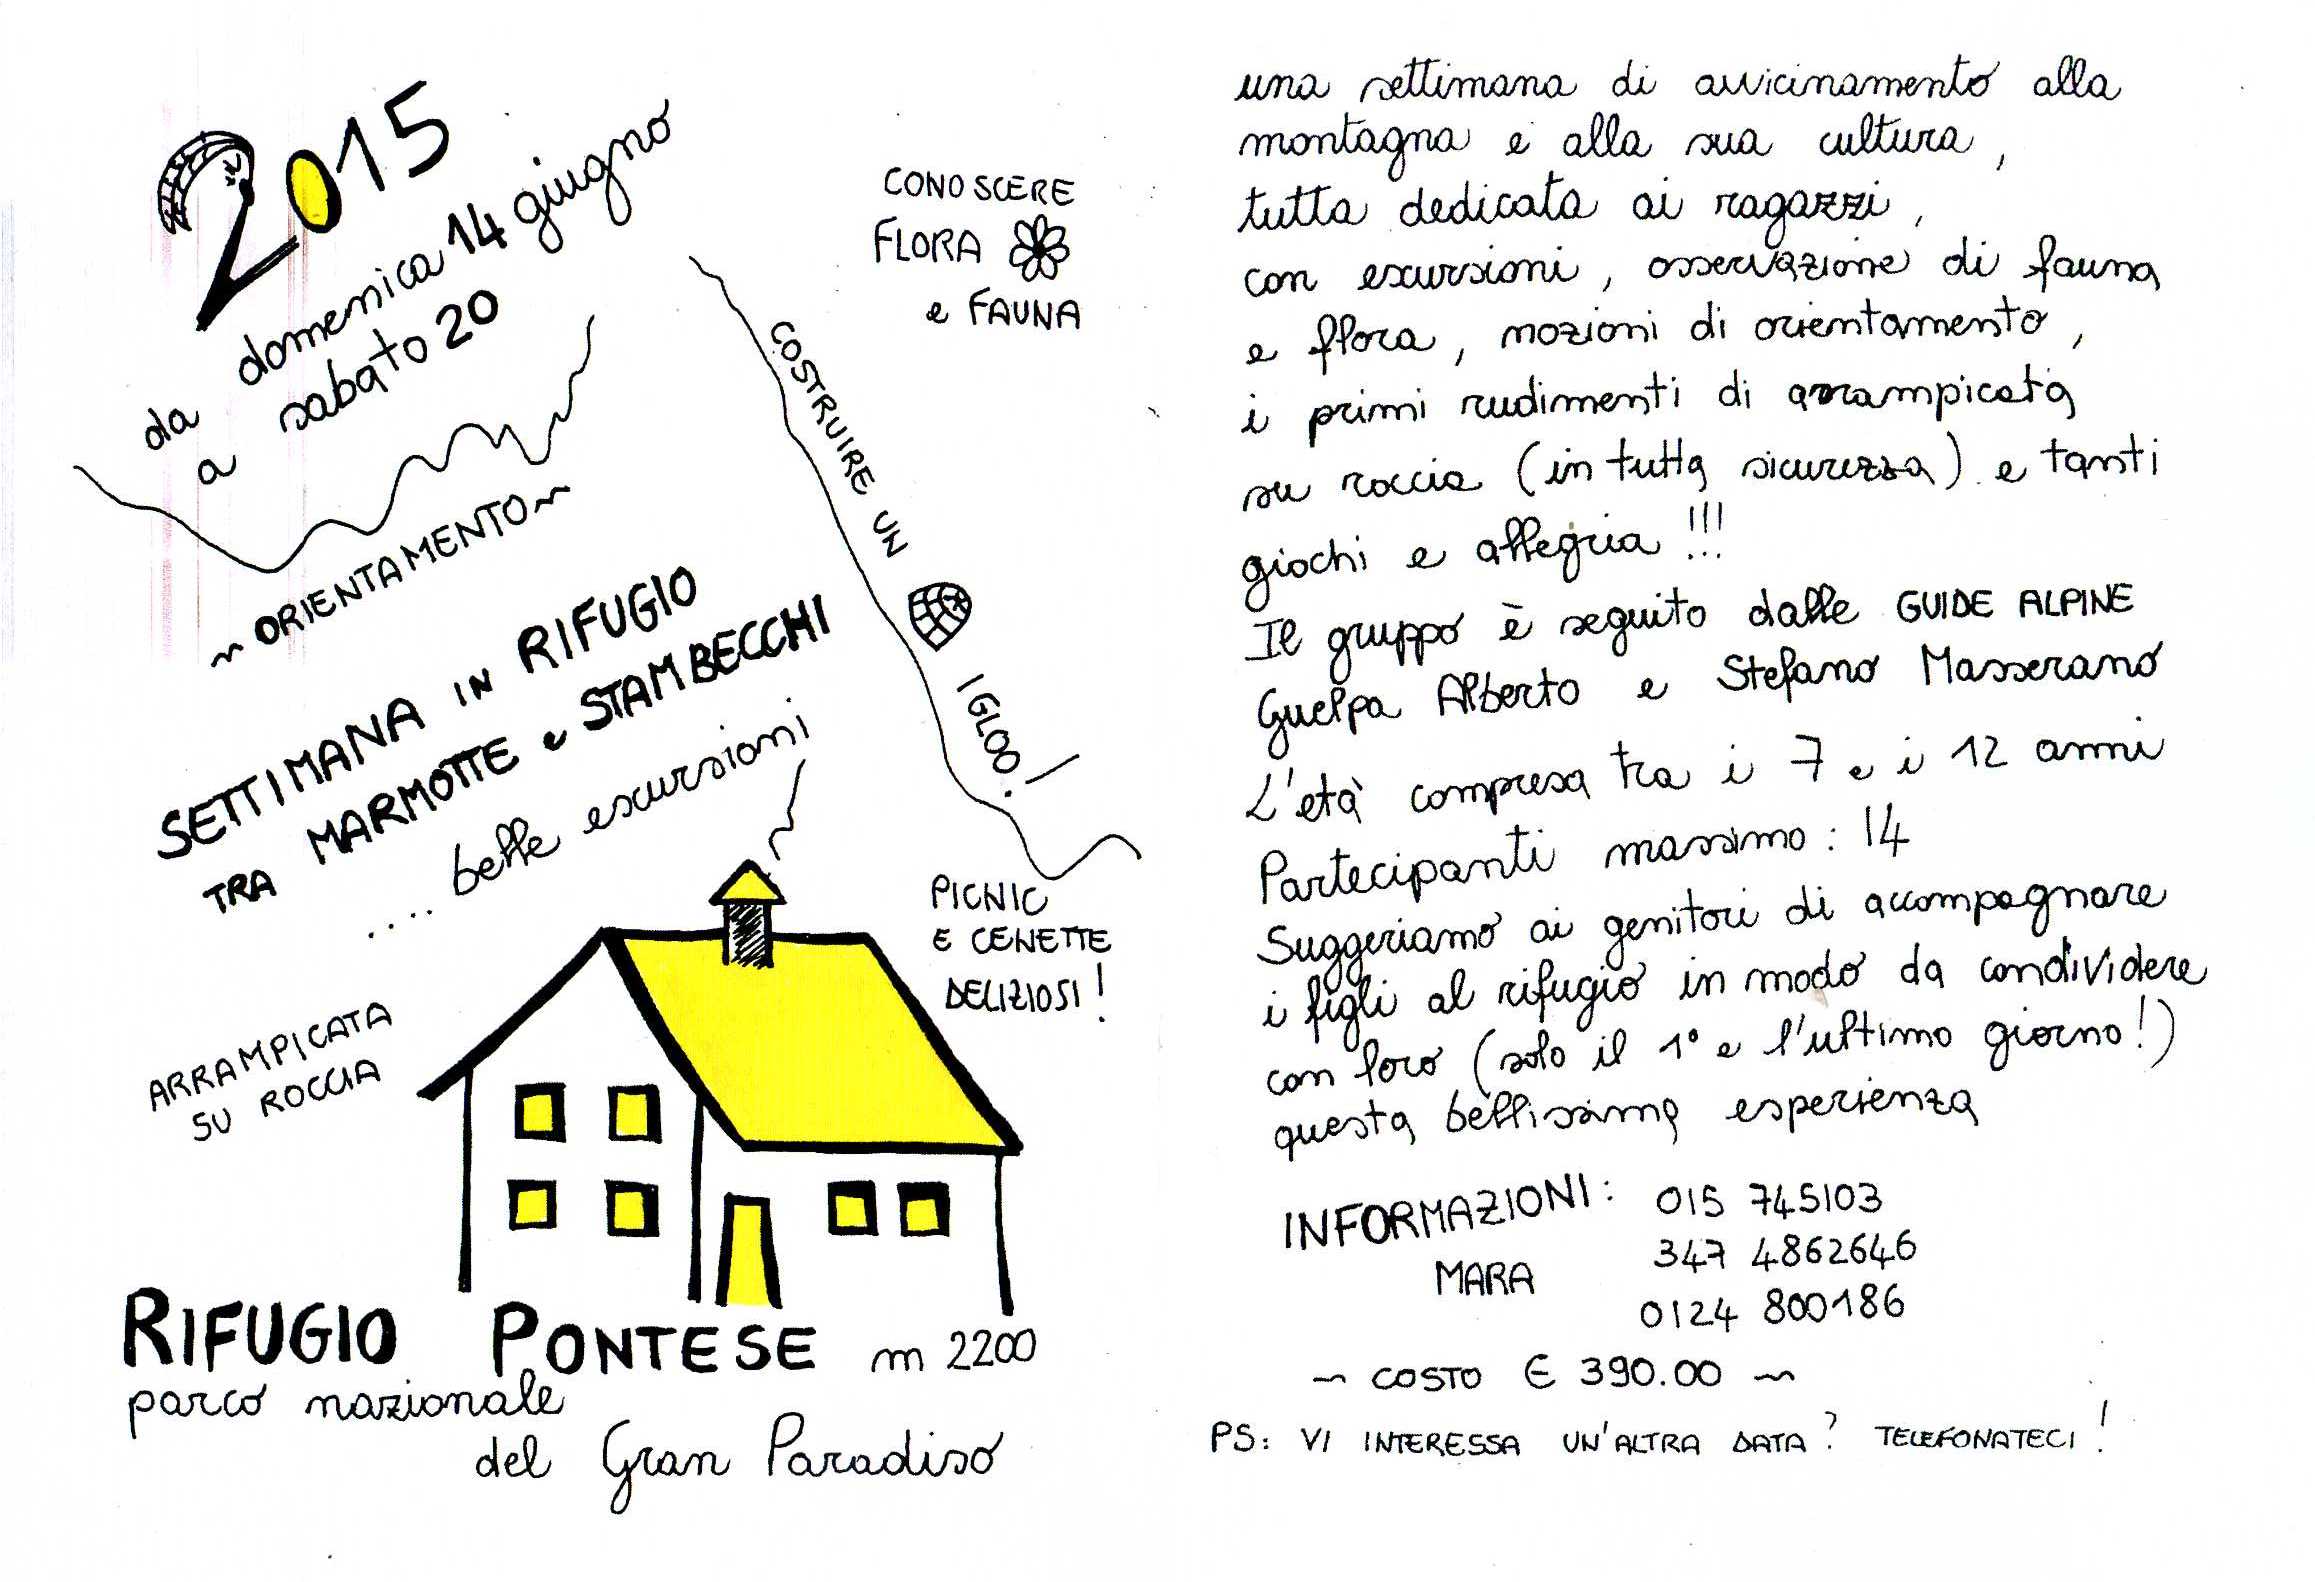 2015
da domenica 14 giugno
a sabato 20
CONOSCERE
FLORA
e FAUNA
COSTRUIRE UN IGLOO!
~ ORIENTAMENTO ~
SETTIMANA IN RIFUGIO
TRA MARMOTTE e STAMBECCHI
.... belle escursioni
PICNIC
E CENETTE
DELIZIOSI!
ARRAMPICATA
SU ROCCIA
RIFUGIO PONTESE m 2200
parco nazionale
del Gran Paradiso
una settimana di avvicinamento alla
montagna e alla sua cultura,
tutta dedicata ai ragazzi,
con escursioni, osservazione di fauna
e flora, nozioni di orientamento,
i primi rudimenti di arrampicata
su roccia (in tutta sicurezza) e tanti
giochi e allegria!!!
Il gruppo è seguito dalle GUIDE ALPINE
Guelpa Alberto e Stefano Masserano
L'età compresa tra i 7 e i 12 anni
Partecipanti massimo: 14
Suggeriamo ai genitori di accompagnare
i figli al rifugio in modo da condividere
con loro (solo il 1° e l'ultimo giorno!)
questa bellissima esperienza
INFORMAZIONI: 015 745103
347 4862646
MARA
0124 800186
~ COSTO € 390.00 ~
PS: VI INTERESSA UN'ALTRA DATA? TELEFONATECI!